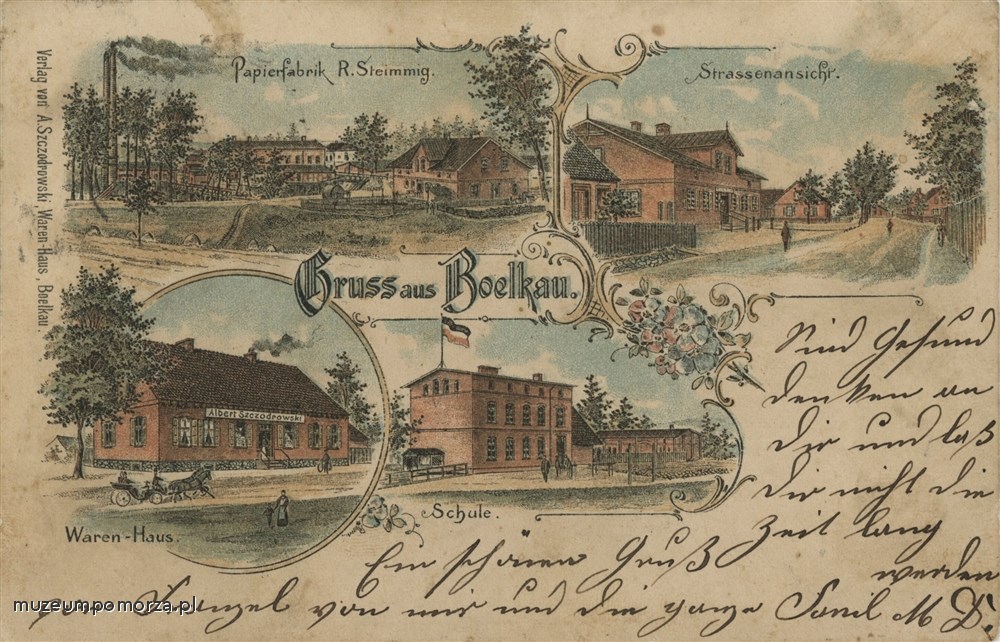 Verlag von A. Szczodrowski Waren-Haus, Boelkau.
Papierfabrik R. Steimmig.
Strassenansicht.
Gruss aus Boelkau.
Albert Szczodrowski
Waren-Haus.
Schule.
Sind Gesund
denken an
Dir und laß
Dir nicht die
Zeit lang
werden
Ein schönen Gruß
von mir und die ganze Famil M D.
muzeumpomorza.pl